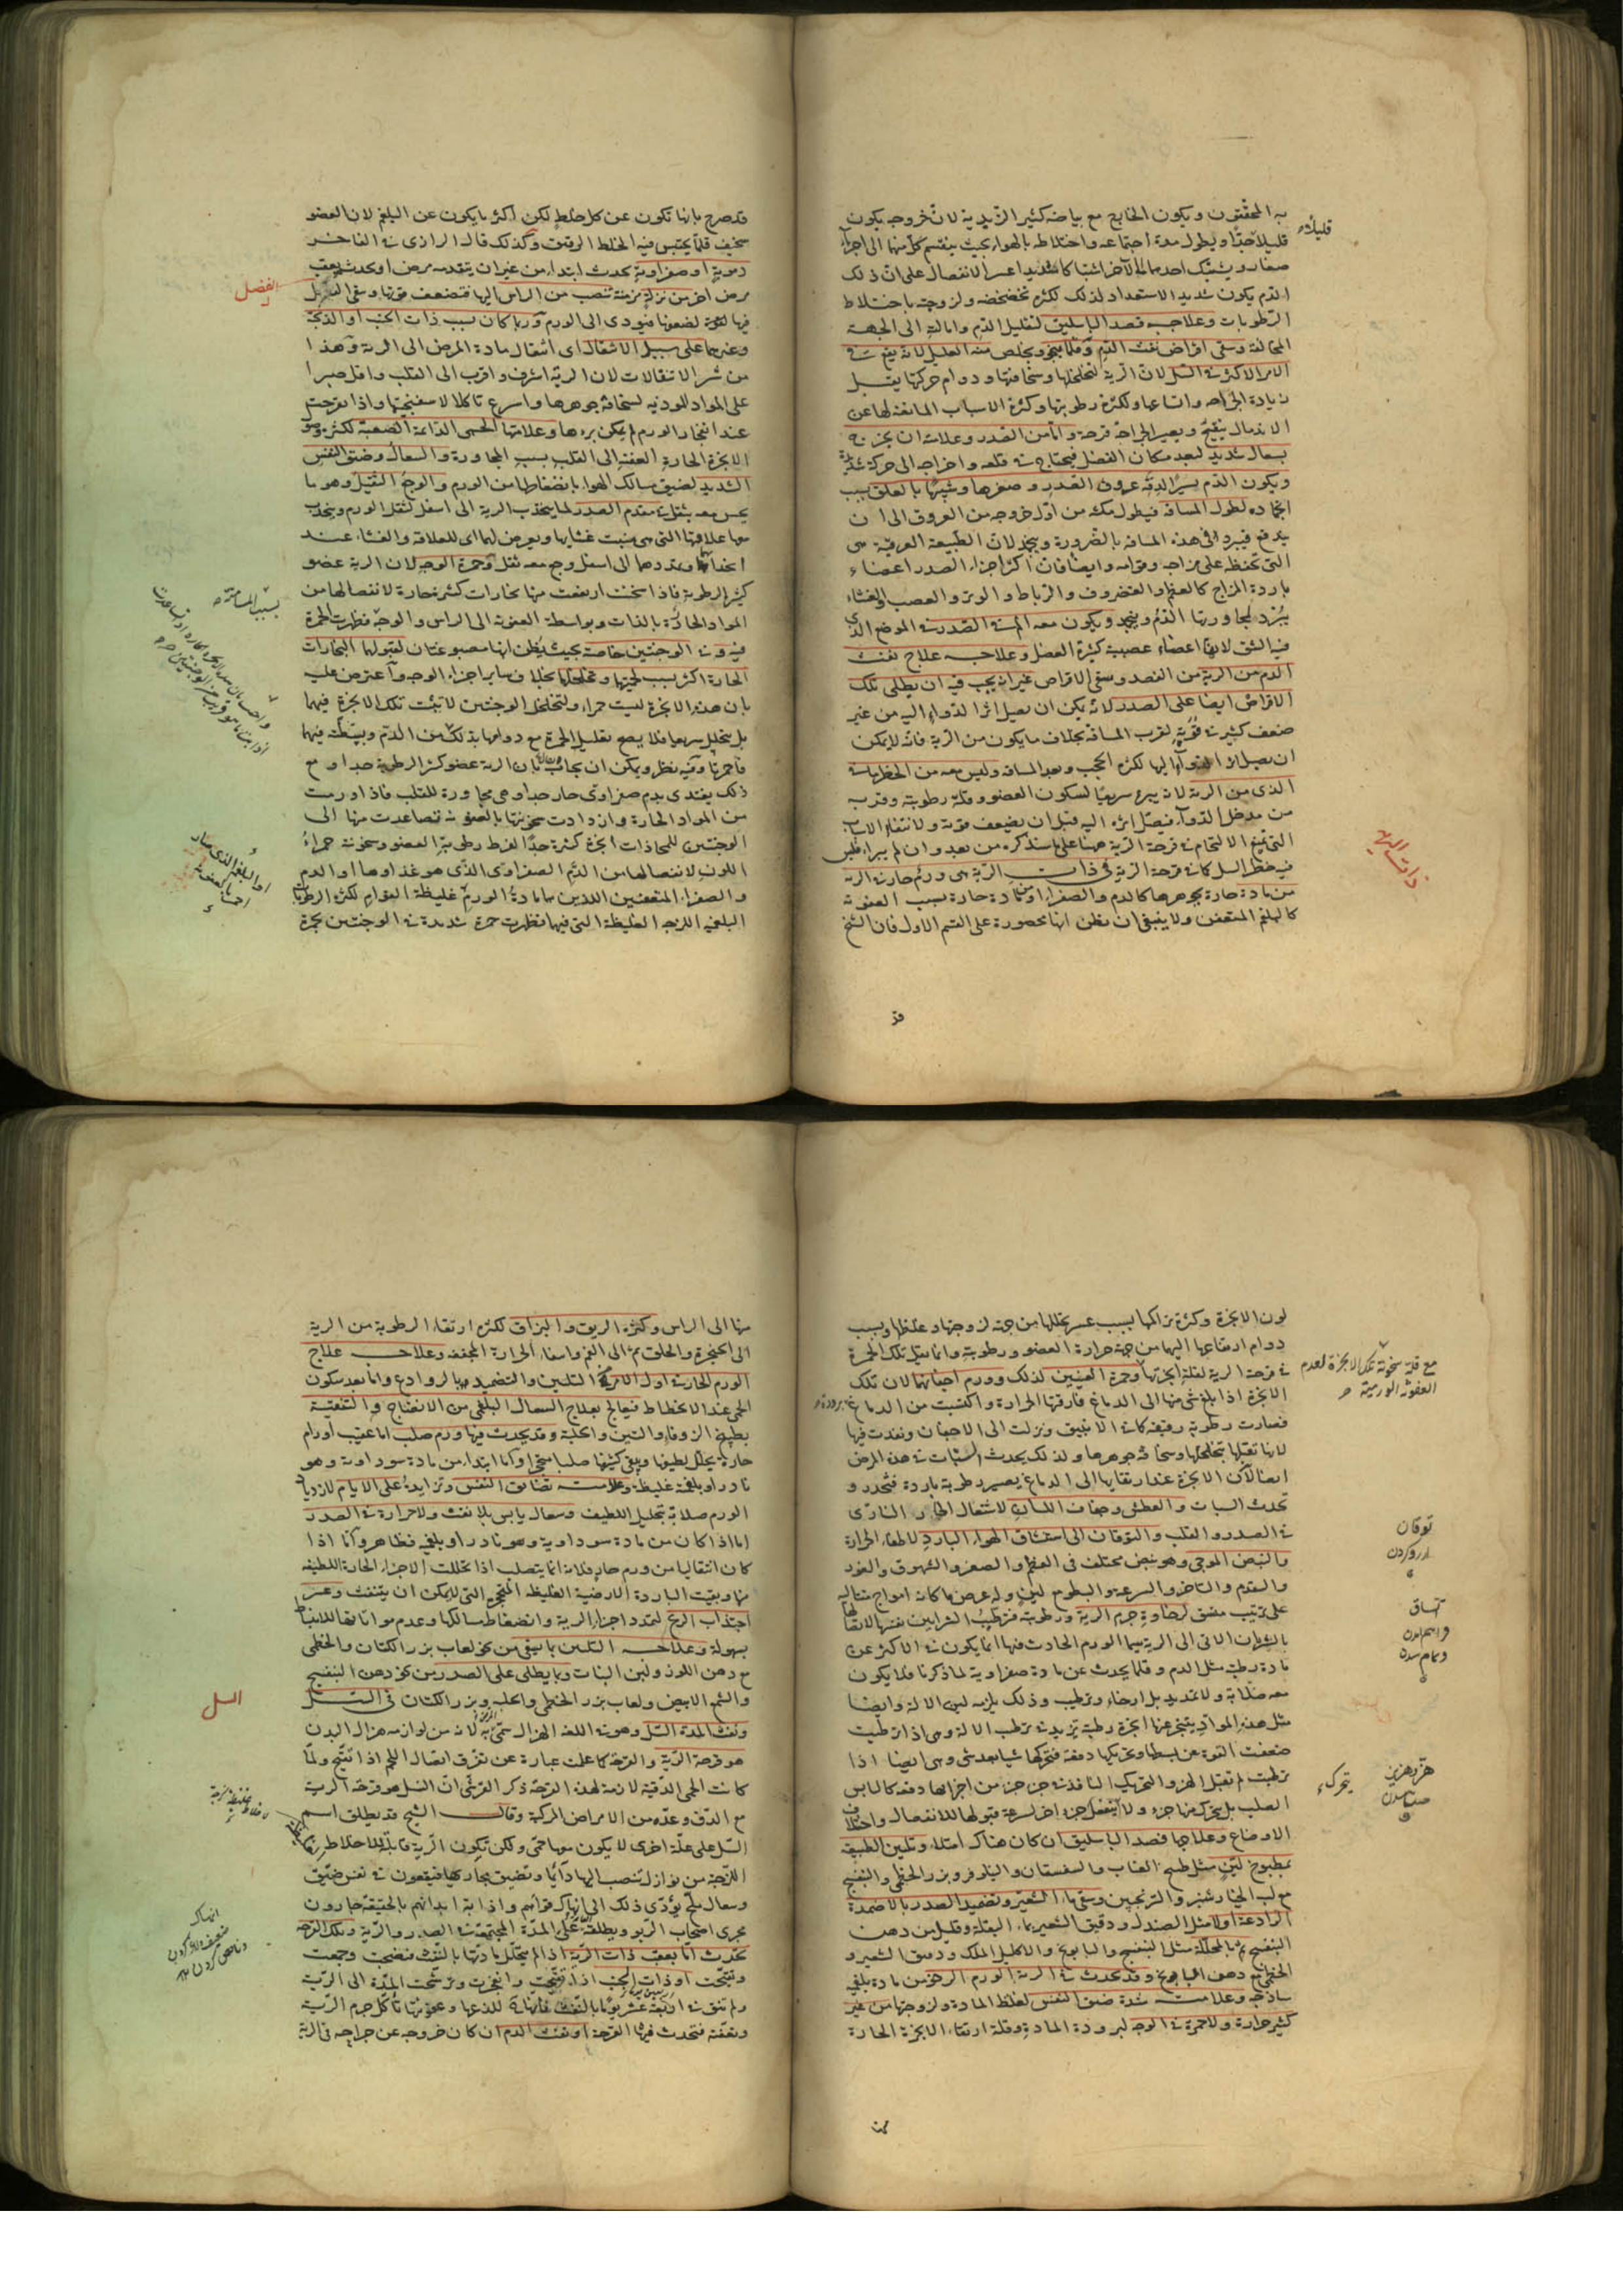 به المحققون ويكون الخارج مع بياضه كثير الزبدية لان خروجه يكون
قليلا جدا ويطول مدة اجتماعه واختلاطه بالهواء بحيث ينقسم كل منهما الى اجزاء
صغار ويشتبك احدهما بالآخر اشتباكا شديدا عسر الانفصال على ان ذلك
الدم يكون شديد الاستعداد لذلك لكثرة تخضخضه ولزوجته باختلاط
الرطوبات وعلاجه فصد الباسليق لتقليل الدم وامالته الى الجهة
المخالفة وسقى اقراض نفث الدم وقلما ينجو ويخلص منه العليل لانه يقع في
الامر الاكثر في السل لان الرية لتخلخلها وسخافتها ودوام حركتها يقبل
زيادة الجراحة واتساعها ولكثرة رطوبتها وكثرة الاسباب المانعة لها عن
الاندمال يتقيح ويصير الجراحة قرحة واما من الصدر وعلامته ان يخرج
بسعال شديد لبعد مكان الفضل فيحتاج في قلعه واخراجه الى حركة شديدة
ويكون الدم يسيرا لدقة عروق الصدر وصغرها وشبيها بالعلق بسبب
انجماده لطول المسافة فيطول مكثه من اول خروجه من العروق الى ان
يندفع فيبرد في هذه المسافة بالضرورة وينجمد لان الطبيعة العرقية هي
التي تحفظ على مزاجه وقوامه وايضا فان اكثر اجزاء الصدر اعضاء
باردة المزاج كالعظم والغضروف والرباط والوتر والعصب والغشاء
يبرد لمجاورتها الدم وينجمد ويكون معه الم في الصدر في الموضع الذي
فيه الشق لانها اعضاء عصبية كثيرة الفضل وعلاجه علاج نفث
الدم من الرية من الفصد وسقى الاقراص غير انه يجب فيه ان يطلى تلك
الاقراص ايضا على الصدر لانه يمكن ان يصل اثر الدواء اليه من غير
ضعف كثير في قوته لقرب المسافة بخلاف ما يكون من الرية فانه لا يمكن
ان يصل اثر الدواء اليها لكثرة الحجب وبعد المسافة وليس معه من الخطر ما في
الذي من الرية لانه يبرء سريعا لسكون العضو وقلة رطوبته وقربه
من مدخل الدواء فيصل اثره اليه قبل ان يضعف قوته ولانتفاء الاسباب
التي تمنع الالتحام في قرحة الرية عنها على ما سنذكره من بعد وان لم يبرء فليس
فيه خطر السل كما في قرحة الرية في ذات الرية هي ورم حار في الرية
من مادة حارة بجوهرها كالدم والصفراء او مادة حارة بسبب العفونة
كالبلغم المتعفن ولا ينبغي ان يظن انها محصورة على القسم الاول فان الشيخ
قد
قليلا
ذات الرية
قد صرح بانها تكون عن كل خلط لكن اكثر ما يكون عن البلغم لان العضو
سخيف قلما يحتبس فيه الخلط الرقيق وكذلك قال الرازي في الفاخر
دموية او صفراوية يحدث ابتداء من غير ان يتقدمه مرض او يحدث بعقب
مرض اخر من نزلة مزمنة تنصب من الراس اليها فتضعف قوتها وسقى
فيها لقوة لضعفها فيؤدي الى الورم وربما كان بسبب ذات الجنب او الذبحة
وغيرها على سبيل الانتقال اي انتقال مادة المرض الى الرية وهذا
من شر الانتقالات لان الرية اشرف واقرب الى القلب واقل صبرا
على المواد الموذية لسخافة جوهرها واسرع تاكلا لاسفنجيتها واذا تقرحت
عند انفجار الورم لم يمكن برءها وعلامتها الحمى الدائمة الصعبة لكثرة وصول
الابخرة الحارة العفنة الى القلب بسبب المجاورة والسعال وضيق النفس
الشديد لضيق مسالك الهواء بانضغاطها من الورم والوجع الثقيل وهو ما
يحس معه بثقل في مقدم الصدر لما ينجذب الرية الى اسفل لثقل الورم وينجذب
معها علاقتها التي هي منبت غشائها ويعرض لهما اي للعلاقة والغشاء عند
انجذابهما وتمددهما الى اسفل وجع معه ثقل وحمرة الوجه لان الرية عضو
كثير الرطوبة فاذا سخنت ارتفعت منها بخارات كثيرة حارة لانفصالها من
المواد الحارة بالذات وبواسطة العفونة الى الراس والوجه فظهرت الحمرة
فيه وفي الوجنتين خاصة بحيث يظن انها مصبوغتان لقبولهما البخارات
الحارة اكثر بسبب لحميتها وتخلخلها بخلاف ساير اجزاء الوجه واعترض عليه
بان هذه الابخرة ليست حمراء ولتخلخل الوجنتين لا تثبت تلك الابخرة فيهما
بل يتخلل سريعا فلا يصح تعليل الحمرة مع دوامها بذلك من الدم وببسطه فيهما
فاحمرتا وفيه نظر ويمكن ان يجاب بان الرية عضو كثير الرطوبة جدا ومع
ذلك يغتذي بدم صفراوي حار جدا وهي مجاورة للقلب فاذا ورمت
من المواد الحارة وازدادت سخونتها بالعفونة تصاعدت منها الى
الوجنتين للمحاذات ابخرة كثيرة جدا لفرط رطوبة العضو وسخونته حمراء
اللون لانفصالها من الدم الصفراوي الذي هو غذاوها او الدم
والصفراء المتعفنين اللذين هما مادة الورم غليظة القوام لكثرة الرطوبات
البلغمية اللزجة الغليظة التي فيها فظهرت حمرة شديدة في الوجنتين بحمرة
الفضل
بسبب المسامتة
لون الابخرة وكثرة تراكمها بسبب عسر تحللها من جهة لزوجتها وغلظها وبسبب
دوام ارتفاعها اليهما من جهة حرارة العضو ورطوبته وانما يقل تلك الحمرة
في قرحة الرية لقلة ابخرتها وحمرة العينين لذلك وورم اجفانهما لان تلك
الابخرة اذا بلغ شئ منها الى الدماغ فارقتها الحرارة واكتسبت من الدماغ برودة
فصارت رطوبة رقيقة كما في الانبيق ونزلت الى الاجفان ونفذت فيها
لانها تقبلها بتخلخلها وسخافة جوهرها ولذلك يحدث السبات في هذه المرض
ايضا لان الابخرة عند ارتقائها الى الدماغ يصير رطوبة باردة فتخدر و
تحدث السبات والعطش وجفاف اللسان لاشتعال الحار الناري
في الصدر والقلب والتوقان الى استنشاق الهواء البارد لاطفاء الحرارة
والنبض الموجي وهو نبض مختلف في العظم والصغر والشهوق والغور
والتقدم والتاخر والسرعة والبطوء مع لين وله عرض ما كانه امواج متتالية
على ترتيب متسق لرخاوة جرم الرية ورطوبته فترطب الشرايين نفسها لاتصالها
بالشريان الاتي الى الرية سيما الورم الحادث فيها انما يكون في الاكثر عن
مادة رطبة مثل الدم وقلما يحدث عن مادة صفراوية لما ذكرنا فلا يكون
معه صلابة ولا تمديد بل ارخاء وترطيب وذلك يلزمه لين الالة وايضا
مثل هذه المواد يتبخر عنها ابخرة رطبة تزيد في ترطب الالة وهي اذا ترطبت
ضعفت القوة عن بسطها وتحريكها دفعة فتحركها شيئا بعد شئ وهي ايضا اذا
ترطبت لم تقبل الهز والتحريك النافذ في جزء جزء من اجزائها دفعة كاليابس
الصلب بل يتحرك منها جزء ولا ينفعل جزء اخر لسرعة قبولها للانفصال واختلاف
الاوضاع وعلاجها فصد الباسليق ان كان هناك امتلاء وتليين الطبيعة
بمطبوخ لين مثل طبيخ العناب والسفستان والنيلوفر وبزر الخطمي والبنفسج
مع لب الخيارشنبر والترنجبين وسقى ماء الشعير وتضميد الصدر بالاضمدة
الرادعة اولا مثل الصندل ودقيق الشعير بماء البقلة وقليل من دهن
البنفسج ثم بالمحللة مثل البنفسج والبابونج والاكليل الملك ودقيق الشعير و
الخطمي مع دهن البابونج وقد يحدث في الرية الورم الرخو من مادة بلغمية
ساذجة وعلامته شدة ضيق النفس لغلظ المادة ولزوجتها من غير
كثير حرارة ولا حمرة في الوجه لبرودة المادة وقلة ارتقاء الابخرة الحارة
مع قلة سخونة تلك الابخرة لعدم
العفونة الورمية
توقان
ارزو كردن
اتساق
وتمام شدن
يتحرك
منها الى الراس وكثرة الريق والبزاق لكثرة ارتقاء الرطوبة من الرية
الى الحنجرة والحلق ثم الى الفم وانتفاء الحرارة المجففة وعلاجه علاج
الورم الحار في اول الامر من التليين والتضميد بالروادع واما بعد سكون
الحمى عند الانحطاط فيعالج بعلاج السعال البلغمي من الانضاج والتنقية
بطبيخ الزوفا والتين والحلبة وقد يحدث فيها ورم صلب اما عقيب اورام
حارة يحلل لطيفها ويبقى كثيفها صلبا متحجرا واما ابتداء من مادة سوداوية وهو
نادر او بلغمية غليظة وعلامته تضايق النفس وتزايده على الايام لازدياد
الورم صلابة بتحليل اللطيف وسعال يابس بلا نفث ولا حرارة في الصدر
اما اذا كان من مادة سوداوية وهو نادر او بلغمي فظاهر واما اذا
كان انتقاليا من ورم حار فلانه انما يتصلب اذا تحللت الاجزاء الحارة اللطيفة
منها وبقيت الباردة الارضية الغليظة المتحجرة التي لا يمكن ان يتنفث وعسر
اجتذاب الريح لتمدد اجزاء الرية وانضغاط مسالكها وعدم مواتاتها للانبساط
بسهولة وعلاجه التليين بما يسقى من نحو لعاب بزر الكتان والخطمي
مع دهن اللوز ولبن البنات وبما يطلى على الصدر من نحو دهن البنفسج
والشمع الابيض ولعاب بزر الخطمي والحلبة وبزر الكتان في السل
ونفث المدة السل وهو في اللغة الهزال سمى به لانه من لوازمه هزال البدن
هو قرحة الرية والقرحة كما علمت عبارة عن تفرق اتصال اللحم اذا تقيح ولما
كانت الحمى الدقية لازمة لهذه القرحة ذكر القرشي ان السل هو قرحة الرية
مع الدق وعده من الامراض المركبة وقال الشيخ قد يطلق اسم
السل على علة اخرى لا يكون معها حمى ولكن تكون الرية قابلة للاخلاط
اللزجة من نوازل تنصب اليها دائما وتضيق مجاريها فيقعون في نفس ضيق
وسعال ملح يؤدى ذلك الى انهاك قواهم واذابة ابدانهم بالحقيقة جارون
مجرى اصحاب الربو ويطلق على المدة المجتمعة في الصدر والرية وتلك القرحة
تحدث اما بعقب ذات الرية اذا لم يتحلل مادتها بالنفث فنضجت وجمعت
وتقيحت او ذات الجنب اذا تقيحت وانفجرت وترشحت المدة الى الرية
ولم تنق في اربعة عشر يوما بالنفث فانها للذعها وعفونتها تاكل جرم الرية
وتعفنه فتحدث فيها القرحة او نفث الدم ان كان خروجه عن جراحة في الرية
السل
انهاك
ضعيف ولاغر كردن